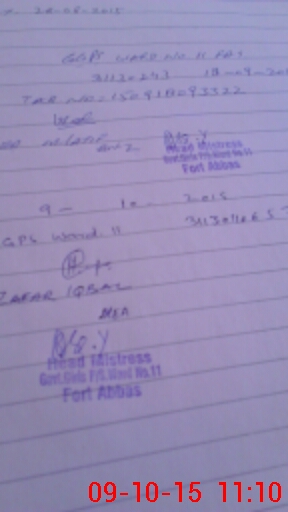 28-08-2015
GGPS WARD NO. 11 FAS
31130243 18-09-20
TAB NO = 150918093522
Head Mistress
Govt.Girls P/S.Ward No.11
Fort Abbas
9 - 10 - 2015
GPS Ward 11
ZAFAR IQBAL
MEA
Head Mistress
Govt.Girls P/S.Ward No.11
Fort Abbas
09-10-15 11:10